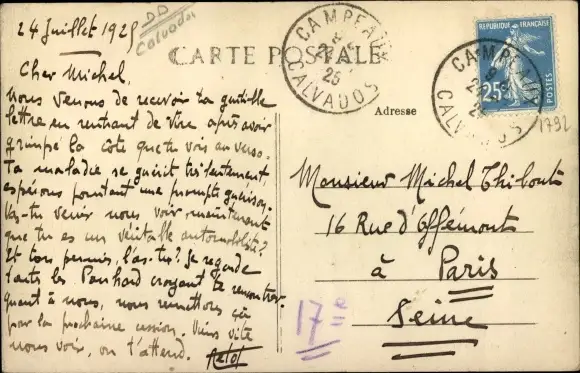 24 Juillet 1925
DD
Calvados
CARTE POSTALE
CAMPEAUX
CALVADOS
25
CAMPEAUX
CALVADOS
RÉPUBLIQUE FRANÇAISE
25c
POSTES
1792
Adresse
Cher Michel,
Nous venons de recevoir ta gentille
lettre en rentrant de Vire après avoir
grimpé la côte que tu vois au verso.
Ta maladie se guérit très lentement,
espérons pourtant une prompte guérison.
Vas-tu venir nous voir maintenant
que tu es un véritable automobiliste?
Et ton permis, l'as-tu? Je regarde
toutes les Panhard croyant te rencontrer.
quant à nous, nous remettons ça
pour la prochaine session. Viens vite
nous voir, on t'attend.
Monsieur Michel Thibout
16 Rue d'Offémont
à Paris
Seine
17e